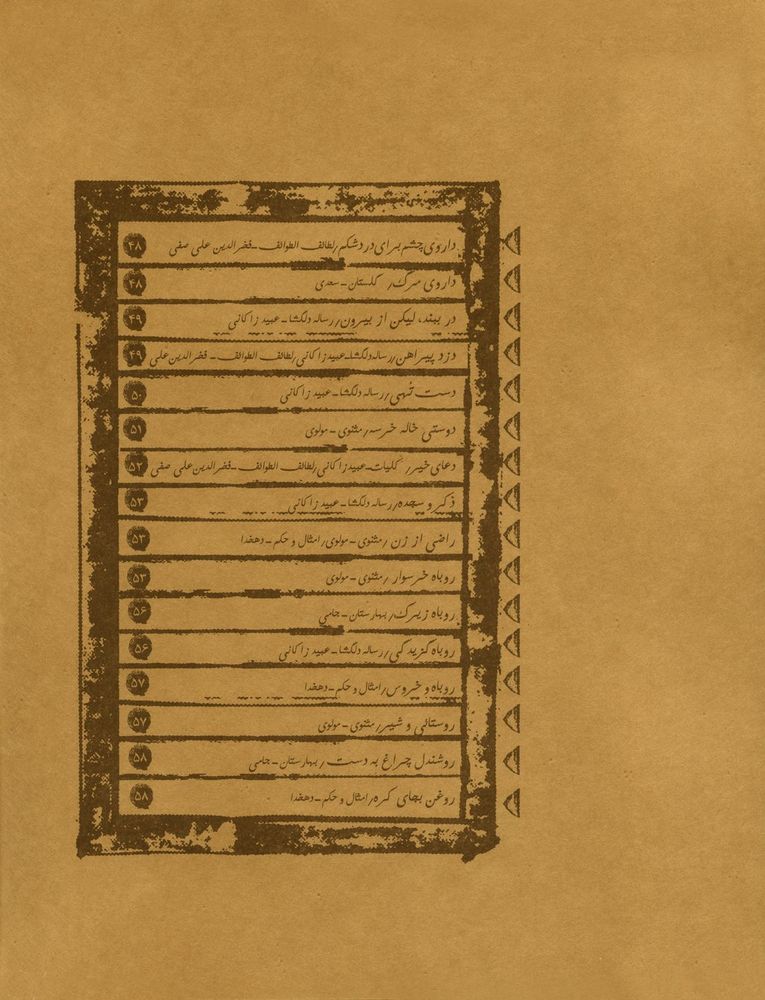 داروی چشم برای درد شکم/لطائف الطوائف - فخرالدین علی صفی ۴۸
داروی مرگ/ گلستان - سعدی ۴۸
در ببند، لیکن از بیرون/رساله دلگشا - عبید زاکانی ۴۹
دزد پیراهن/رساله دلگشا-عبید زاکانی/لطائف الطوائف - فخرالدین علی ۴۹
دست تهی/رساله دلگشا - عبید زاکانی ۵۰
دوستی خاله خرسه/مثنوی - مولوی ۵۱
دعای خیر/ کلیات-عبید زاکانی/لطائف الطوائف - فخرالدین علی صفی ۵۲
ذکر و سجده/رساله دلگشا - عبید زاکانی ۵۳
راضی از زن /مثنوی - مولوی/امثال و حکم - دهخدا ۵۳
روباه خرسوار /مثنوی - مولوی ۵۳
روباه زیرک/بهارستان - جامی ۵۶
روباه گزیدگی/رساله دلگشا - عبید زاکانی ۵۶
روباه و خروس/امثال و حکم - دهخدا ۵۷
روستائی و شیر/مثنوی - مولوی ۵۷
روشندل چراغ به دست /بهارستان - جامی ۵۸
روغن بجای کره/امثال و حکم - دهخدا ۵۸